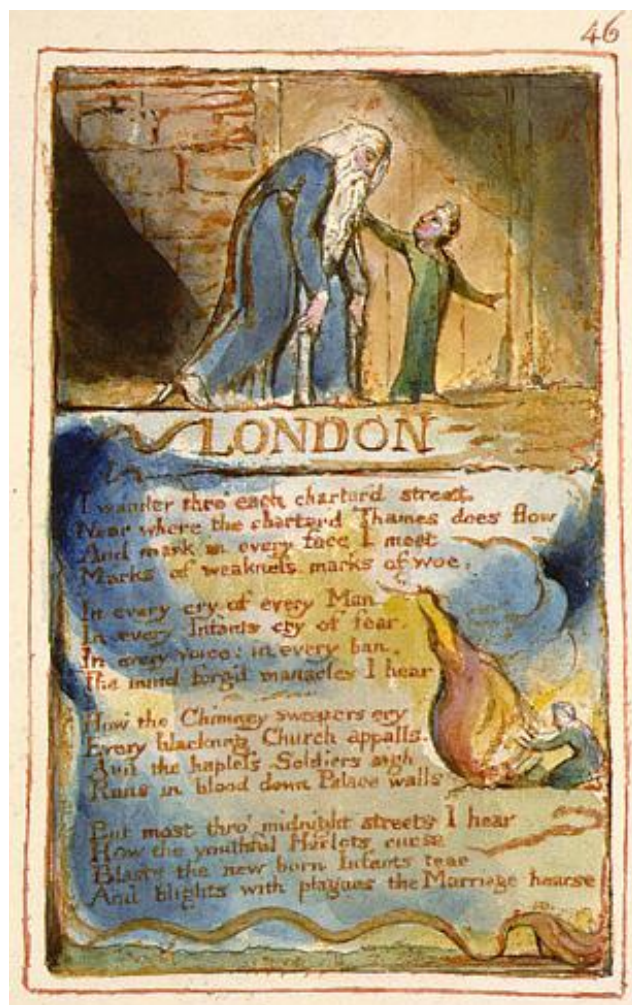 46
LONDON
I wander thro' each charter'd street,
Near where the charter'd Thames does flow
And mark in every face I meet
Marks of weakness, marks of woe.
In every cry of every Man,
In every Infants cry of fear,
In every voice: in every ban,
The mind-forg'd manacles I hear
How the Chimney-sweepers cry
Every blackning Church appalls,
And the hapless Soldiers sigh
Runs in blood down Palace walls
But most thro' midnight streets I hear
How the youthful Harlots curse
Blasts the new-born Infants tear
And blights with plagues the Marriage hearse